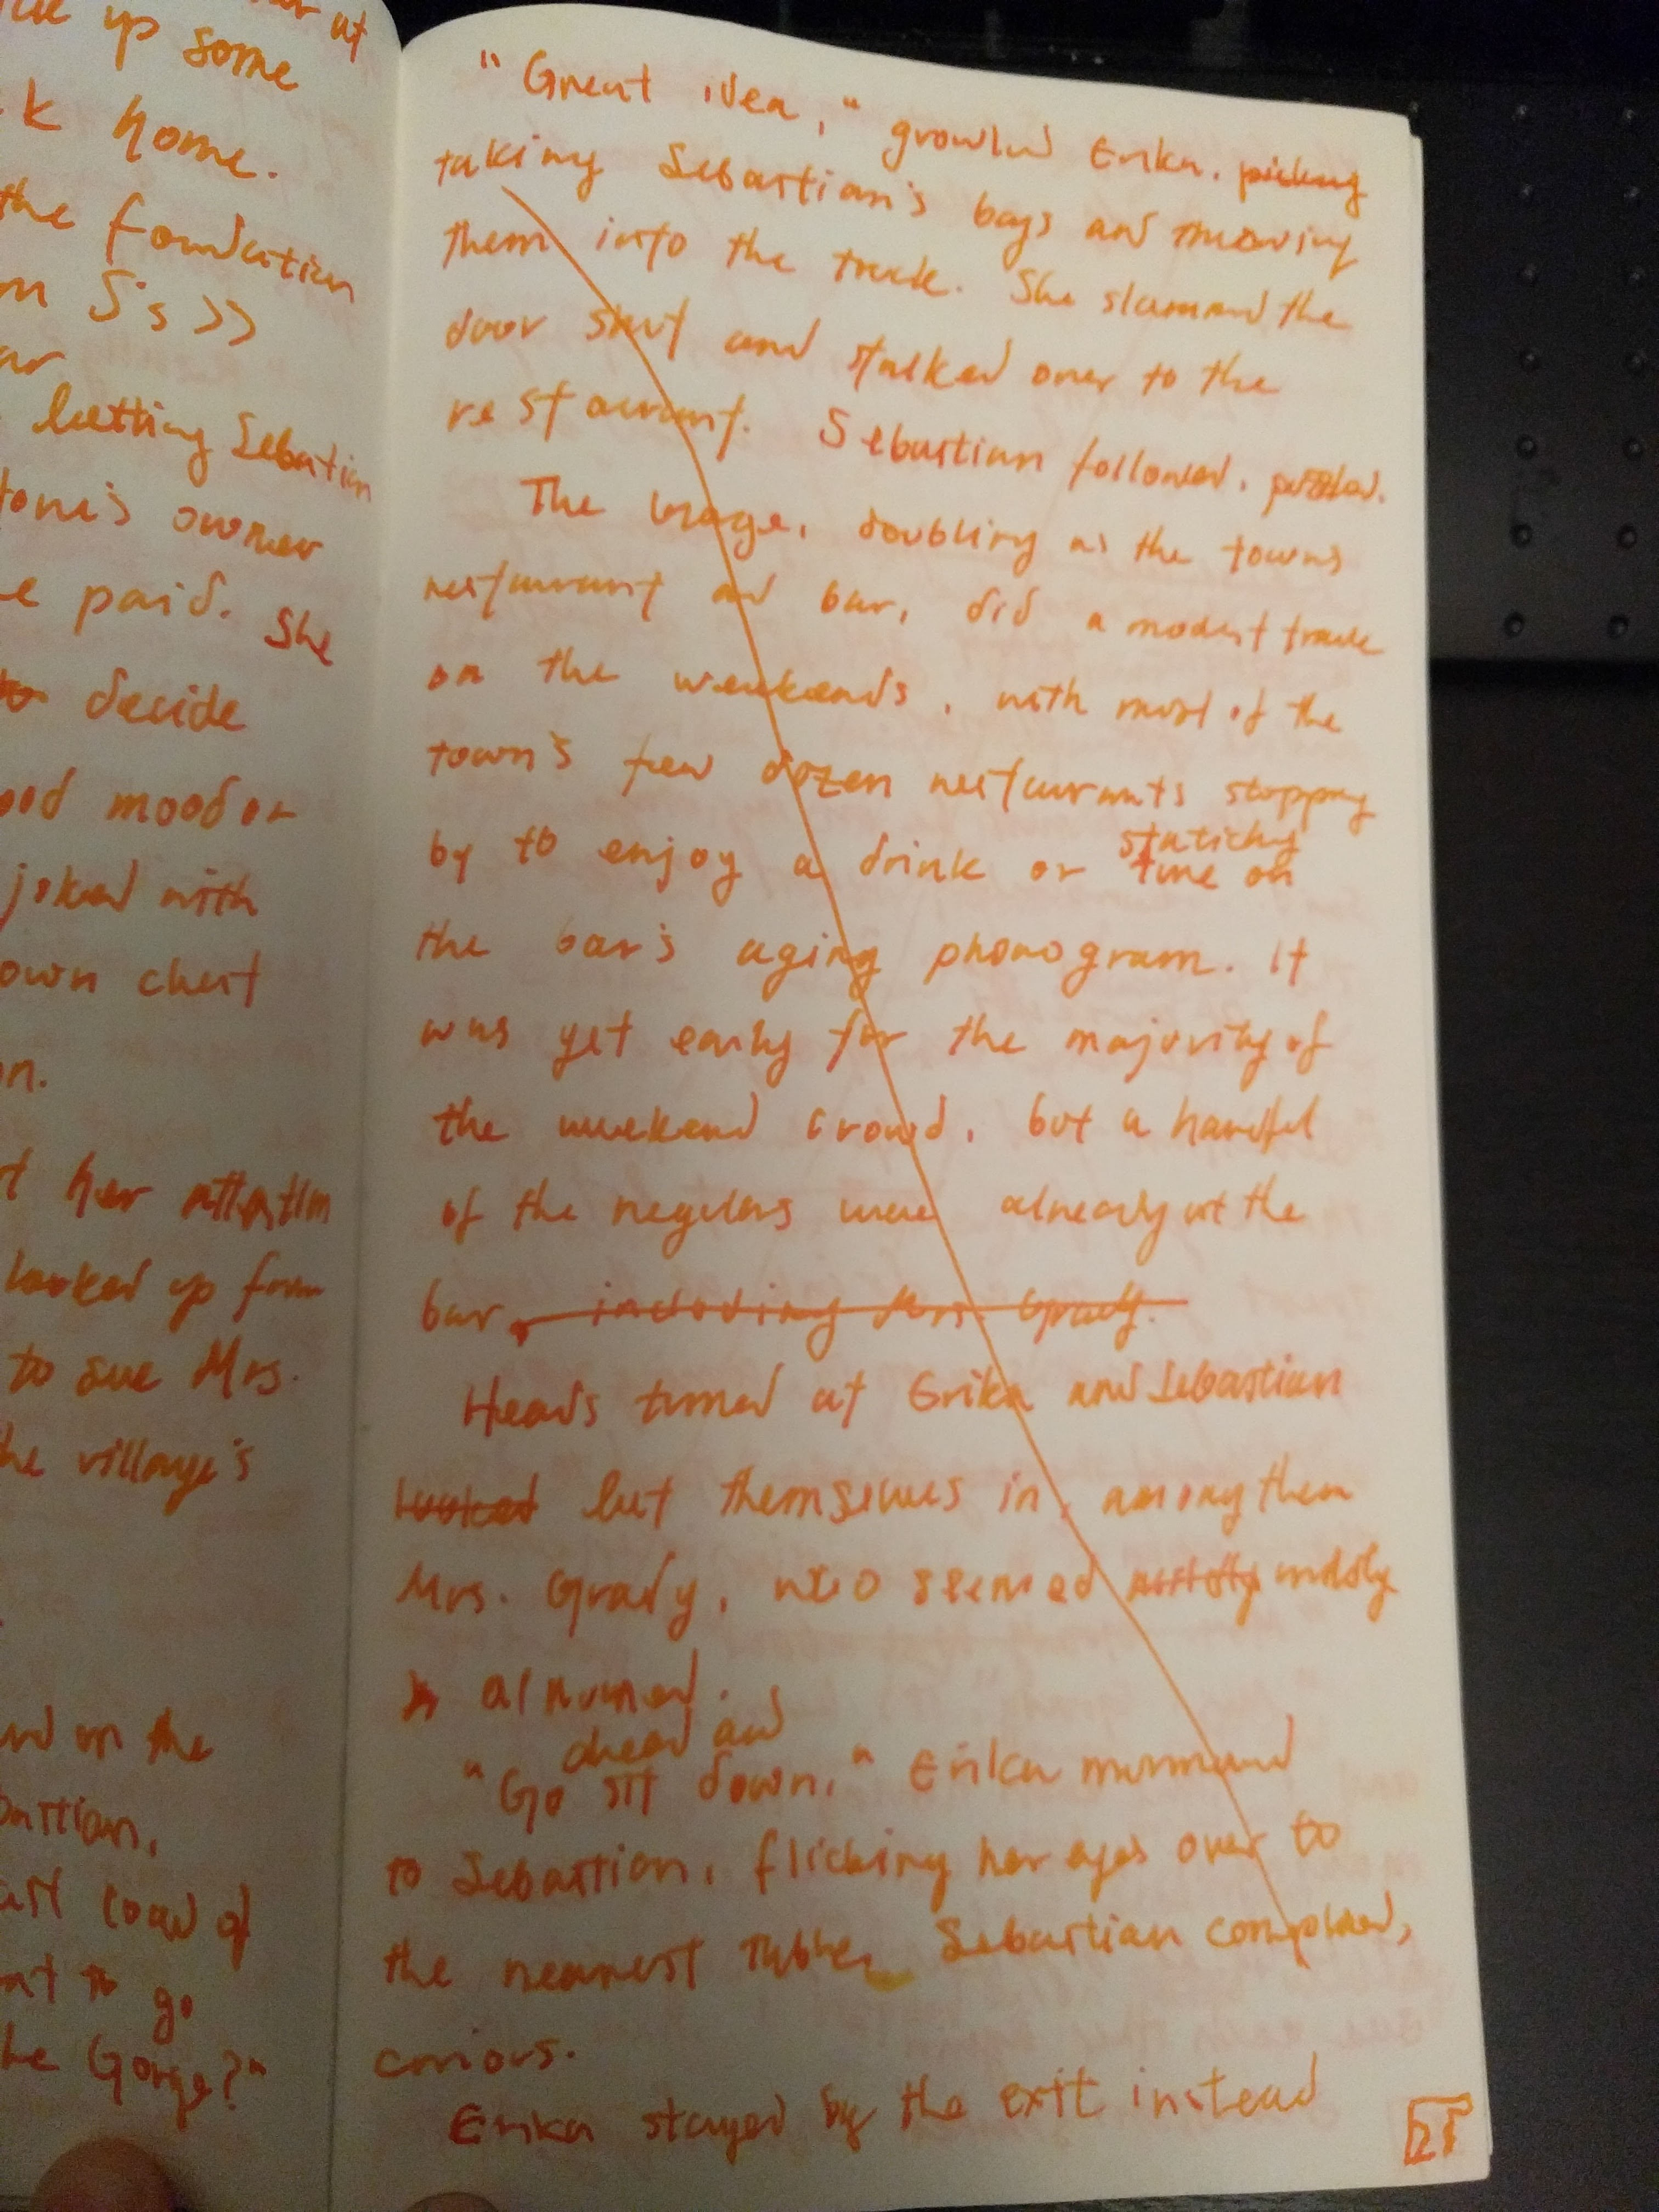 up some
k home.
the foundation
on S's >>
letting Sebastian
owner
e paid. She
to decide
ood mood or
joked with
own chest
on.
her attention
looked up from
to see Mrs.
the village's
on the
bastian,
load of
nt to go
he Gorge?"
"Great idea," growled Erika. picking
taking Sebastian's bags and throwing
them into the truck. She slammed the
door shut and stalked over to the
restaurant. Sebastian followed, puzzled.
The Gorge, doubling as the towns
restaurant and bar, did a modest trade
on the weekends, with most of the
town's few dozen restaurants stopping
by to enjoy a drink or staticky
tune on
the bar's aging phonogram. It
was yet early for the majority of
the weekend crowd, but a handful
of the regulars were already at the
bar, including Mrs. Grady.
Heads turned at Erika and Sebastian
looked let themselves in, among them
Mrs. Grady, who seemed mildly
alarmed.
ahead and
"Go sit down," Erika murmured
to Sebastian, flicking her eyes over to
the nearest table. Sebastian complied,
curious.
Erika stayed by the exit instead